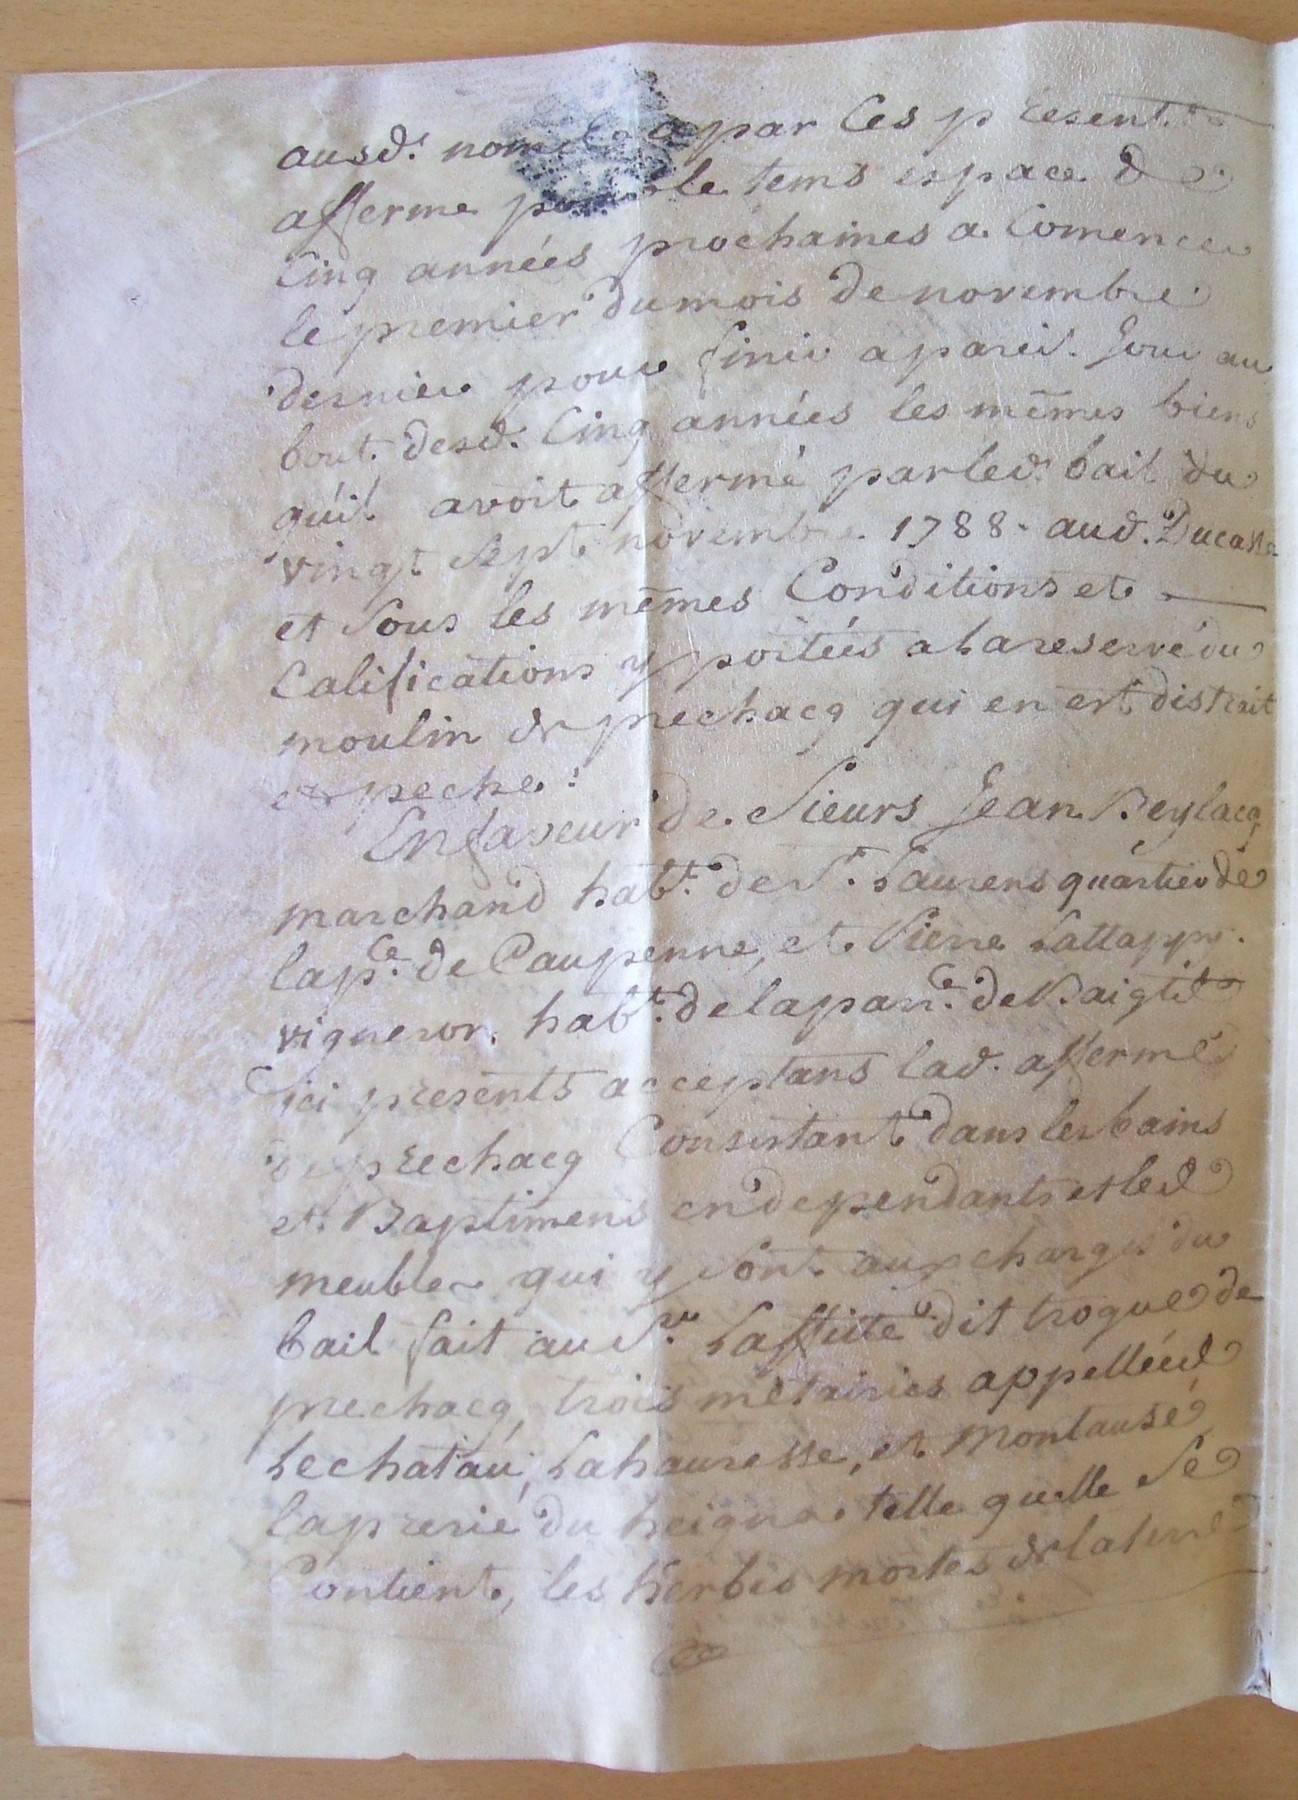 ausd. nom a par Ces presentes
afferme pour le tems espace de
Cinq années prochaines a Comencer
le premier du mois de novembre
dernier pour finir a pareil Jour au
bout desd. Cinq années les mêmes biens
qu'il avoit affermé par led. bail du
vingt sept novembre 1788 aud. Ducasse
et Sous les mêmes Conditions et
Calif̀ications y portées a la reserve du
moulin de prechacq qui en est distrait
et peche.
En faveur de Sieurs Jean Beylacq
marchand habt. de St. Laurens quartier de
la pce. de Caupenne, et Pierre Lattappy
vigneron habt. de la parce. de Baigtz
ici presents acceptans lad. afferme
de prechacq Consistant dans les bains
et Baptimens en dependants et les
meubles qui y sont aux charges du
bail fait au Sr. Laffitte dit troque de
prechacq, trois métairies appellées
Lechatau, Lahauresse, et Montausé
la prerie du heigna telle quelle Se
Contient, les herbes mortes de la